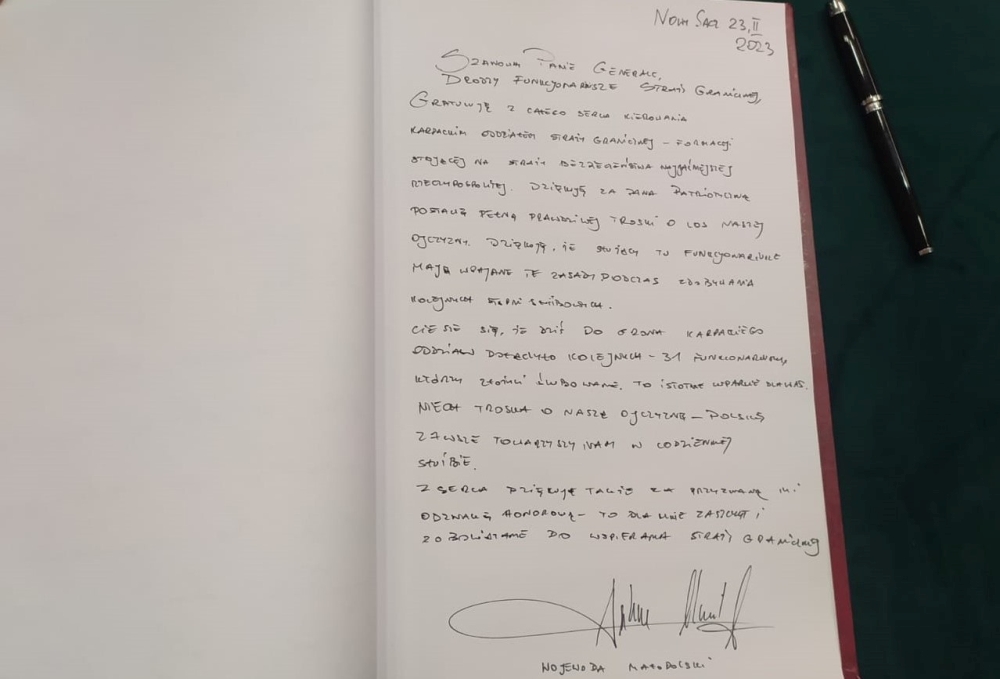 Nowy Sącz 23.II
2023
Szanowny Panie Generale,
Drodzy Funkcjonariusze Straży Granicznej,
Gratuluję z całego serca kierowania
Karpackim Oddziałem Straży Granicznej – formacji
stojącej na straży bezpieczeństwa Najjaśniejszej
Rzeczypospolitej. Dziękuję za Pana patriotyczną
postawę pełną prawdziwej troski o los naszej
Ojczyzny. Dziękuję, że służący tu funkcjonariusze
mają wpajane te zasady podczas zdobywania
kolejnych stopni służbowych.
Cieszę się, że dziś do grona Karpackiego
Oddziału dołączyło kolejnych – 31 funkcjonariuszy,
którzy złożyli ślubowanie. To istotne wsparcie dla nas.
Niech troska o naszą Ojczyznę – Polskę
zawsze towarzyszy Wam w codziennej
służbie.
Z serca dziękuję także za przyznaną mi
odznakę honorową – to dla mnie zaszczyt i
zobowiązanie do wspierania Straży Granicznej
Wojewoda Małopolski